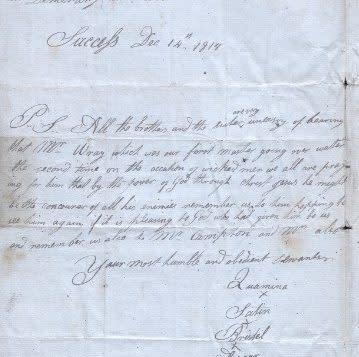 Success Dec 14th 1817
P. S. All the brothers and the sisters uneasy of hearing
that Mr. Wray which was our first master going over water
the second time on the occation of wicked men we all are pray
ing for him that by the power of God through Christ Jesus he might
be the concourer of all his enemies remember us to him hopping to
see him again if it is pleasing to God who had given him to us
and remember us also to Mr. Campton and Mrs. also
Your most humble and obedient servants
Quamina
x
Satin
x
Bristel
x